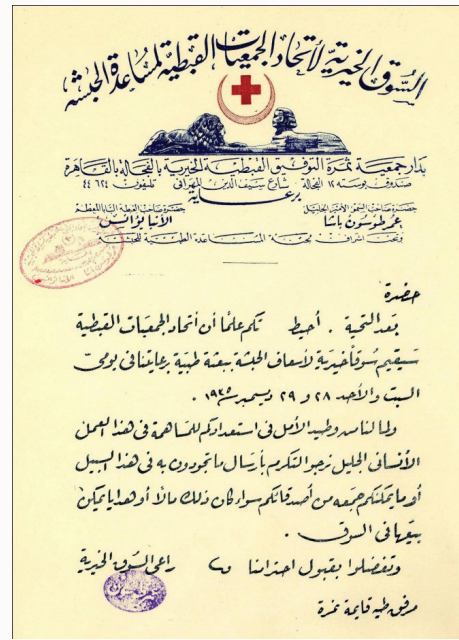 السوق الخيرية لاتحاد الجمعيات القبطية لمساعدة الحبشة
بدار جمعية ثمرة التوفيق القبطية الخيرية بالفجالة بالقاهرة
صندوق بوسته ١٢ الفجالة - شارع سيف الدين المهرانى تليفون ٤٤ ٦٢٤
برعاية
حضرة صاحب السمو الأمير الجليل
حضرة صاحب الغبطة البابا المعظم
عمر طوسون باشا
الأنبا يؤانس
وتحت اشراف لجنة المساعدة الطبية للحبشة
حضرة
بعد التحية . أحيط تكم علماً أن أتحاد الجمعيات القبطية
سيقيم سوقاً خيرية لأسعاف الحبشة ببعثة طبية برعايتنا فى يومى
السبت والأحد ٢٨ و ٢٩ ديسمبر ١٩٣٥ .
ولما لنا من وطيد الأمل فى استعدادكم للمساهمة فى هذا العمل
الأنسانى الجليل نرجو التكرم بأرسال ما تجودون به فى هذا السبيل
أو ما يمكنكم جمعه من أصدقائكم سواء كان ذلك مالاً أو هدايا يمكن
بيعها فى السوق .
وتفضلوا بقبول احترامنا راعى السوق الخيرية
مرفق طيه قايمة نمرة